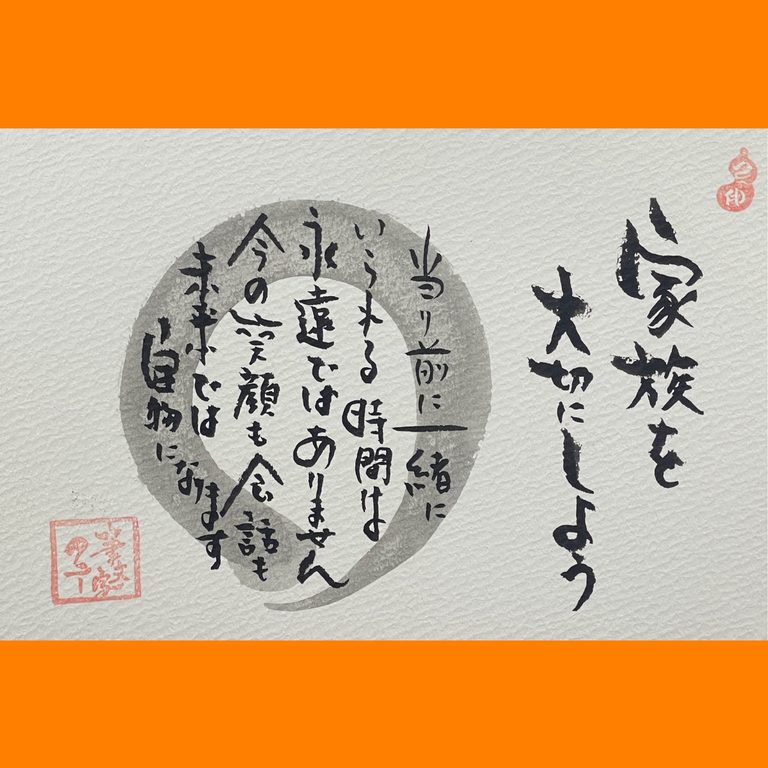 家族を
大切にしよう
当り前に一緒に
いられる時間は
永遠ではありません
今の笑顔も会話も
未来では
宝物になります